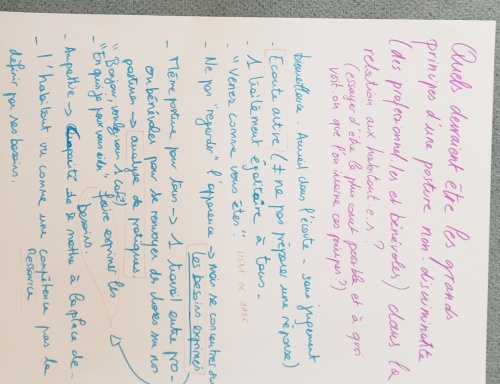 Quels devraient être les grands
principes d'une posture non-discriminante
(des professionnel.les et bénévoles) dans la
relation aux habitant.e.s ?
(essayer d'être le plus ouvert possible et à quoi
voit-on que l'on incarne ces principes ?)
bienveillance. Accueil dans l'écoute - sans jugement
- Ecoute active (≠ ne pas préparer une réponse)
- 1 traitement égalitaire à tous.
- "Venez comme vous êtes."
- Ne pas "regarder" l'apparence → mais se concentrer sur
les besoins exprimés
- Même posture pour tous → 1 travail entre pro-
ou bénévoles pour se renvoyer des choses sur nos
postures → analyse de pratiques.
- "Bonjour, voulez-vous 1 café ?"
"En quoi je peux vous aider" faire exprimer les
besoins.
- Empathie → Capacité de se mettre à la place de -
- l'habitant vu comme une compétence par la
Ressource
définir par ses besoins.